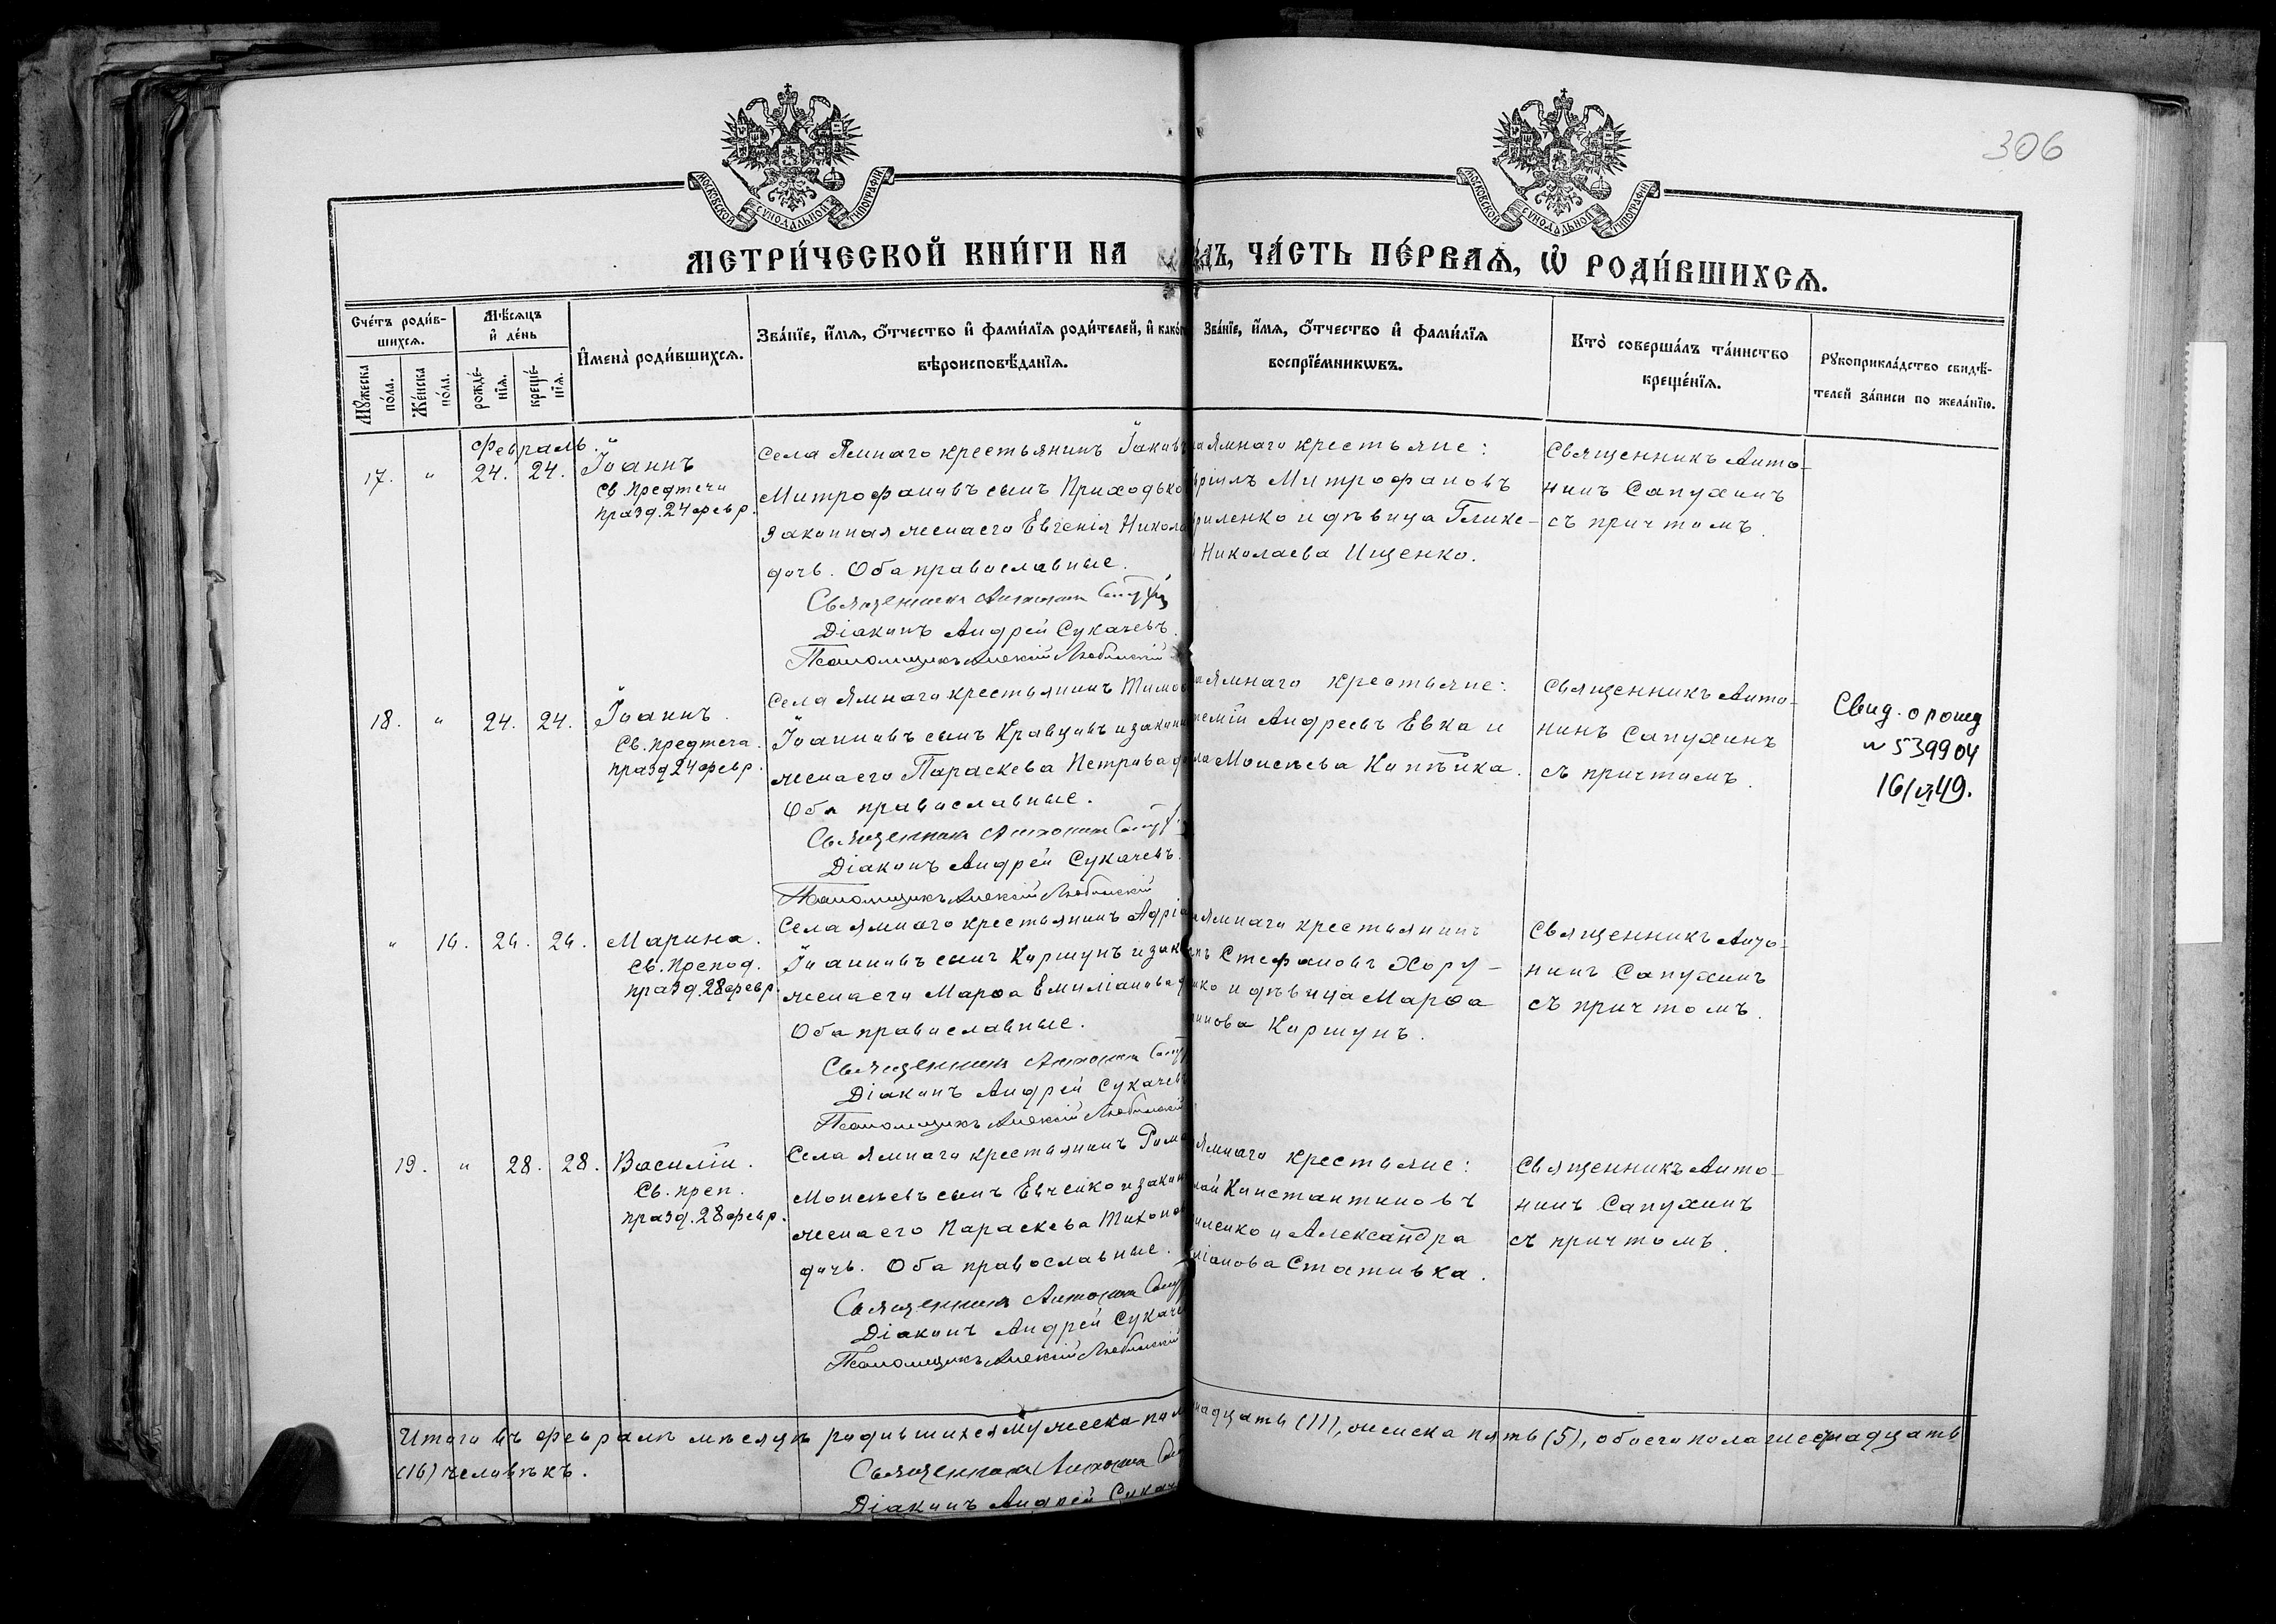 306
МОСКОВСКОЙ СѴНОДАЛЬНОЙ ТИПОГРАФІИ
МОСКОВСКОЙ СѴНОДАЛЬНОЙ ТИПОГРАФІИ
МЕТРИ́ЧЕСКОЙ КНИ́ГИ НА
ЧА́СТЬ ПЕ́РВАѦ, Ѡ҆ РОДИ́ВШИХСѦ.
Сче́тъ роди́в-
шихсѧ.
Мѹжеска
по́ла.
Же́нска
по́ла.
Мѣ́сѧцъ
и҆ де́нь
рожде́-
нїѧ.
креще́-
нїѧ.
И҆мена̀ роди́вшихсѧ.
Зва́нїе, и҆́мѧ, ѻ҆́тчество и҆ фами́лїѧ роди́телей, и҆ како́гѡ
вѣроисповѣ́данїѧ.
Зва́нїе, и҆́мѧ, ѻ҆́тчество и҆ фами́лїѧ
воспрїе́мникѡвъ.
Кто̀ соверша́лъ та́инство
креще́нїѧ.
Рѹкоприкла́дство свидѣ́-
телей за́писи по жела́нїю.
Февраль.
17. " 24. 24. Іоаннъ
Св. Предтечи
празд. 24 февр.
Села Ямнаго крестьянинъ Іаковъ
Митрофановъ сынъ Приходько
законная жена его Евгенія Никола
дочь. Оба православные.
Священникъ Антонинъ
Діаконъ Андрей Сукачевъ.
Псаломщикъ Алексій Любимскій
Ямнаго крестьяне:
Митрофановъ
риленко и дѣвица Глике-
Николаева Ищенко.
Священникъ Анто-
нинъ Сапухинъ
съ причтомъ.
18. " 24. 24. Іоаннъ.
Св. предтеча.
празд 24 февр.
Села Ямнаго крестьянинъ Тимо
Іоанновъ сынъ Кравцовъ и законн
жена его Параскева Петрова до
Оба православные.
Священникъ Антонинъ
Діаконъ Андрей Сукачевъ.
Псаломщикъ Алексій Любимскій
Ямнаго крестьяне:
Андреевъ Евка и
Моисѣева Копѣйка.
Священникъ Анто-
нинъ Сапухинъ
съ причтомъ.
Свид. о рожд
№ 539904
16/VI 49.
" 16. 26. 26. Марина.
Св. Препод.
празд. 28 февр.
Села Ямнаго крестьянинъ Адріа
Іоанновъ сынъ Коршунъ и зак
жена его Марѳа Емиліанова д
Оба православные.
Священникъ Антонинъ
Діаконъ Андрей Сукачевъ
Псаломщикъ Алексій Любимскій
Ямнаго крестьянинъ
Стефановъ Хору-
нко и дѣвица Марѳа
Коршунъ.
Священникъ Анто-
нинъ Сапухинъ
съ причтомъ.
19. " 28. 28. Василій.
Св. преп.
празд. 28 февр.
Села Ямнаго крестьянинъ Рома
Моисѣевъ сынъ Евченко и закон
жена его Параскева Тихонов
дочь. Оба православные.
Священникъ Антонинъ
Діаконъ Андрей Сукаче
Псаломщикъ Алексій Любимскій
Ямнаго крестьяне:
Константиновъ
иленко и Александра
ліанова Стативка.
Священникъ Анто-
нинъ Сапухинъ
съ причтомъ.
Итого въ февралѣ мѣсяцѣ родившихся мужеска пол надцать (11), женска пять (5), обоего пола шестнадцать
(16) человѣкъ.
Священникъ Антонинъ
Діаконъ Андрей Сукач